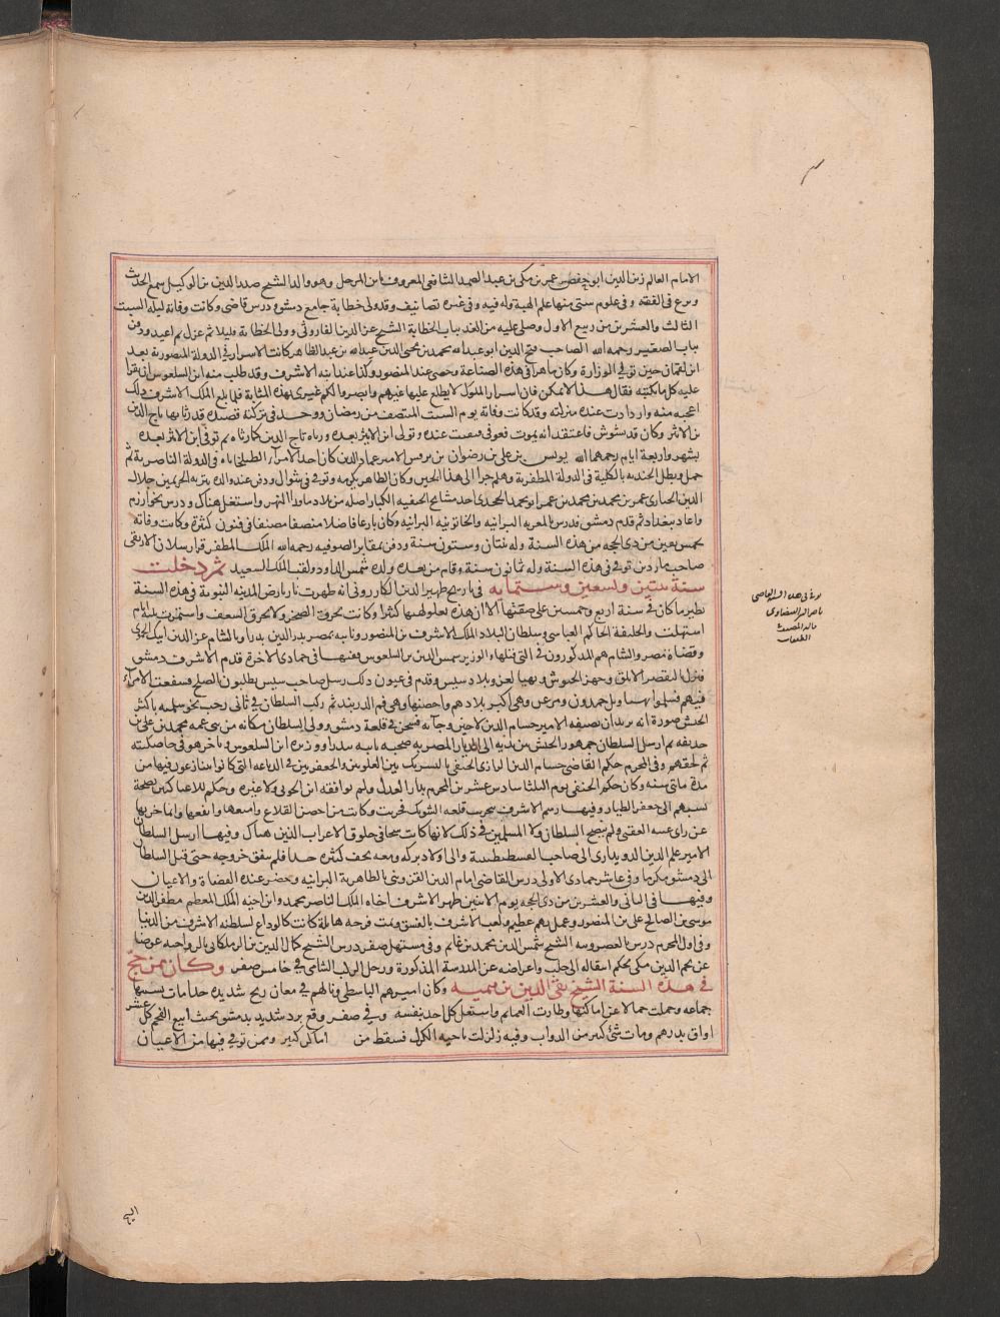 الامام العالم زين الدين ابو حفص عمر بن مكي بن عبد الصمد الشافعي المعروف بابن المرحل وهو والد الشيخ صدر الدين بن الوكيل سمع الحديث
وبرع في الفقه وفي علوم شتى منها علم الهيئة وله فيه وفي غيره تصانيف وقد ولي خطابة جامع دمشق ودرس قاضي وكانت وفاته ليلة السبت
الثالث والعشرين من ربيع الاول وصلي عليه من الغد بباب الخطابة الشيخ عز الدين الفاروثي وولي الخطابة قليلا ثم عزل ثم اعيد ودفن
بباب الصغير رحمه الله الصاحب فتح الدين ابو عبد الله محمد بن محيي الدين عبد الله بن عبد الظاهر كاتب الاسرار في الدولة المنصورية بعد
ابن لقمان حين توفي الوزارة وكان ماهرا في هذه الصناعة وحضي عند المنصور وكذا عند ابنه الاشرف وقد طلب منه ابن السلعوس ان يقرا
عليه كل ما يكتبه فقال هذا لا يمكن فان اسرار الملوك لا يطلع عليها غيرهم وابصروا لكم غيري بهذه المثابة فلما بلغ الملك الاشرف ذلك
اعجبه منه وازدادت عنده منزلته وقد كانت وفاته يوم السبت المنتصف من رمضان ووجد في تركته قصيدة قد رثا بها تاج الدين
بن الاثير وكان قد شوش فاعتقد انه يموت فعوفي فبقيت عنده وتولى ابن الاثير بعده ورثاه تاج الدين كما رثاه ثم توفي ابن الاثير بعده
بشهر واربعة ايام رحمهما الله يونس بن علي بن رضوان بن برقس الامير عماد الدين كان احد الامراء الطبلخاناه في الدولة الناصرية ثم
حمل وبطل الجندية بالكلية في الدولة المظفرية وهلم جرا الى هذا الحين وكان الظاهر يكرمه وتوفي في شوال ودفن عند والده بتربة الخزيمين جلال
الدين الخبازي عمر بن محمد بن محمد بن عمر ابو محمد الخجندي احد مشايخ الحنفية الكبار اصله من بلاد ماوراء النهر واشتغل هناك ودرس بخوارزم
واعاد ببغداد ثم قدم دمشق فدرس بالمعزية البرانية والخاتونية البرانية وكان بارعا فاضلا منصفا مصنفا في فنون كثيرة وكانت وفاته
لخمس بقين من ذي الحجة من هذه السنة وله ثنتان وستون سنة ودفن بمقابر الصوفية رحمه الله الملك المظفر قرا رسلان الارتقي
صاحب ماردين توفي في هذه السنة وله ثمانون سنة وقام من بعده ولده شمس الداود ولقب الملك السعيد ثم دخلت
سنة ثنتين وتسعين وستمائة في تاريخ ظهير الدين الكازروني انه ظهرت نار بارض المدينة النبوية في هذه السنة
نظير ما كان في سنة اربع وخمسين على صفتها الا ان هذه يعلو لهبها كثيرا وكانت تحرق الصخر ولا تحرق السعف واستمرت ثلثة ايام
استهلت والخليفة الحاكم العباسي وسلطان البلاد الملك الاشرف بن المنصور ونائبه بمصر بدر الدين بيدرا وبالشام عز الدين ايبك الحموي
وقضاة مصر والشام هم المذكورون في التي قبلها والوزير شمس الدين بن السلعوس وفيها في جمادى الاخرة قدم الاشرف دمشق
فنزل القصر الابلق وجهز الجيوش وتهيأ لغزو بلاد سيس وقدم في غضون ذلك رسل صاحب سيس يطلبون الصلح فشفعت الامراء
فيهم فسلموا بهسنا وتل حمدون ومرعش وهي اكبر بلادهم واحصنها وهي فم الدربند ثم ركب السلطان في ثاني رجب نحو سلمية باكثر
الجيش صورة انه يريد ان يضيفه الامير حسام الدين لاجين وجاء به فسجن في قلعة دمشق وولى السلطان مكانه من بني عمه محمد بن علي بن
حذيفة ثم ارسل السلطان جمهور الجيش من يديه الى الديار المصرية صحبة نائبه بيدرا ووزيره ابن السلعوس وتاخر هو في خاصكيته
ثم لحقهم وفي المحرم حكم القاضي حسام الدين الرازي الحنفي بالتشريك بين العلويين والجعفريين في الدباغة التي كانوا يتنازعون فيها من
مدة مائتي سنة وكان حكم الحنفي يوم الثلثا سادس عشرين المحرم بدار العدل ولم يوافقه ابن الخويي ولا غيره وحكم للاعناكيين بصحة
نسبهم الى جعفر الطيار وفيها رسم الاشرف بتخريب قلعة الشوبك فخربت وكانت من احصن القلاع وامنعها وانفعها وانما خربها
عن راي عتبة العقبي ولم ينصح السلطان ولا المسلمين في ذلك لانها كانت شجا في حلوق الاعراب الذين هناك وفيها ارسل السلطان
الامير علم الدين الدويداري الى صاحب القسطنطينية والى اولاد بركة ومعه تحف كثيرة جدا فلم يتفق خروجه حتى قتل السلطان
الى دمشق مكرما وفي عاشر جمادى الاولى درس القاضي امام الدين القزويني بالظاهرية البرانية وحضر عنده القضاة والاعيان
وفيها في الثاني والعشرين من ذي الحجة يوم الاثنين طهر الاشرف اخاه الملك الناصر محمد وابن اخيه الملك المعظم مظفر الدين
موسى بن الصالح علي بن المنصور وعمل مهم عظيم ولعب الاشرف بالقبق وتمت فرحة هائلة كانت كالوداع لسلطنة الاشرف من الدنيا
وفي اول المحرم درس بالعصرونية الشيخ شمس الدين محمد بن غانم وفي مستهل صفر درس الشيخ كمال الدين بن الزملكاني بالرواحية عوضا
عن نجم الدين مكي بحكم انتقاله الى حلب واعراضه عن المدرسة المذكورة ودخل الركب الشامي في خامس صفر وكان ممن حج
في هذه السنة الشيخ تقي الدين بن تيمية وكان اميرهم الباسطي ونالهم في معان ريح شديدة جدا مات بسببها
جماعة وحملت جمالا عن اماكنها وطارت العمائم واشتغل كل احد بنفسه وفي صفر وقع برد شديد بدمشق بحيث ابيع القمح كل عشر
اواق بدرهم ومات شئ كثير من الدواب وفيه زلزلت ناحية الكرك فسقط من اماكن كثير وممن توفي فيها من الاعيان
ناصر الدين البيضاوي